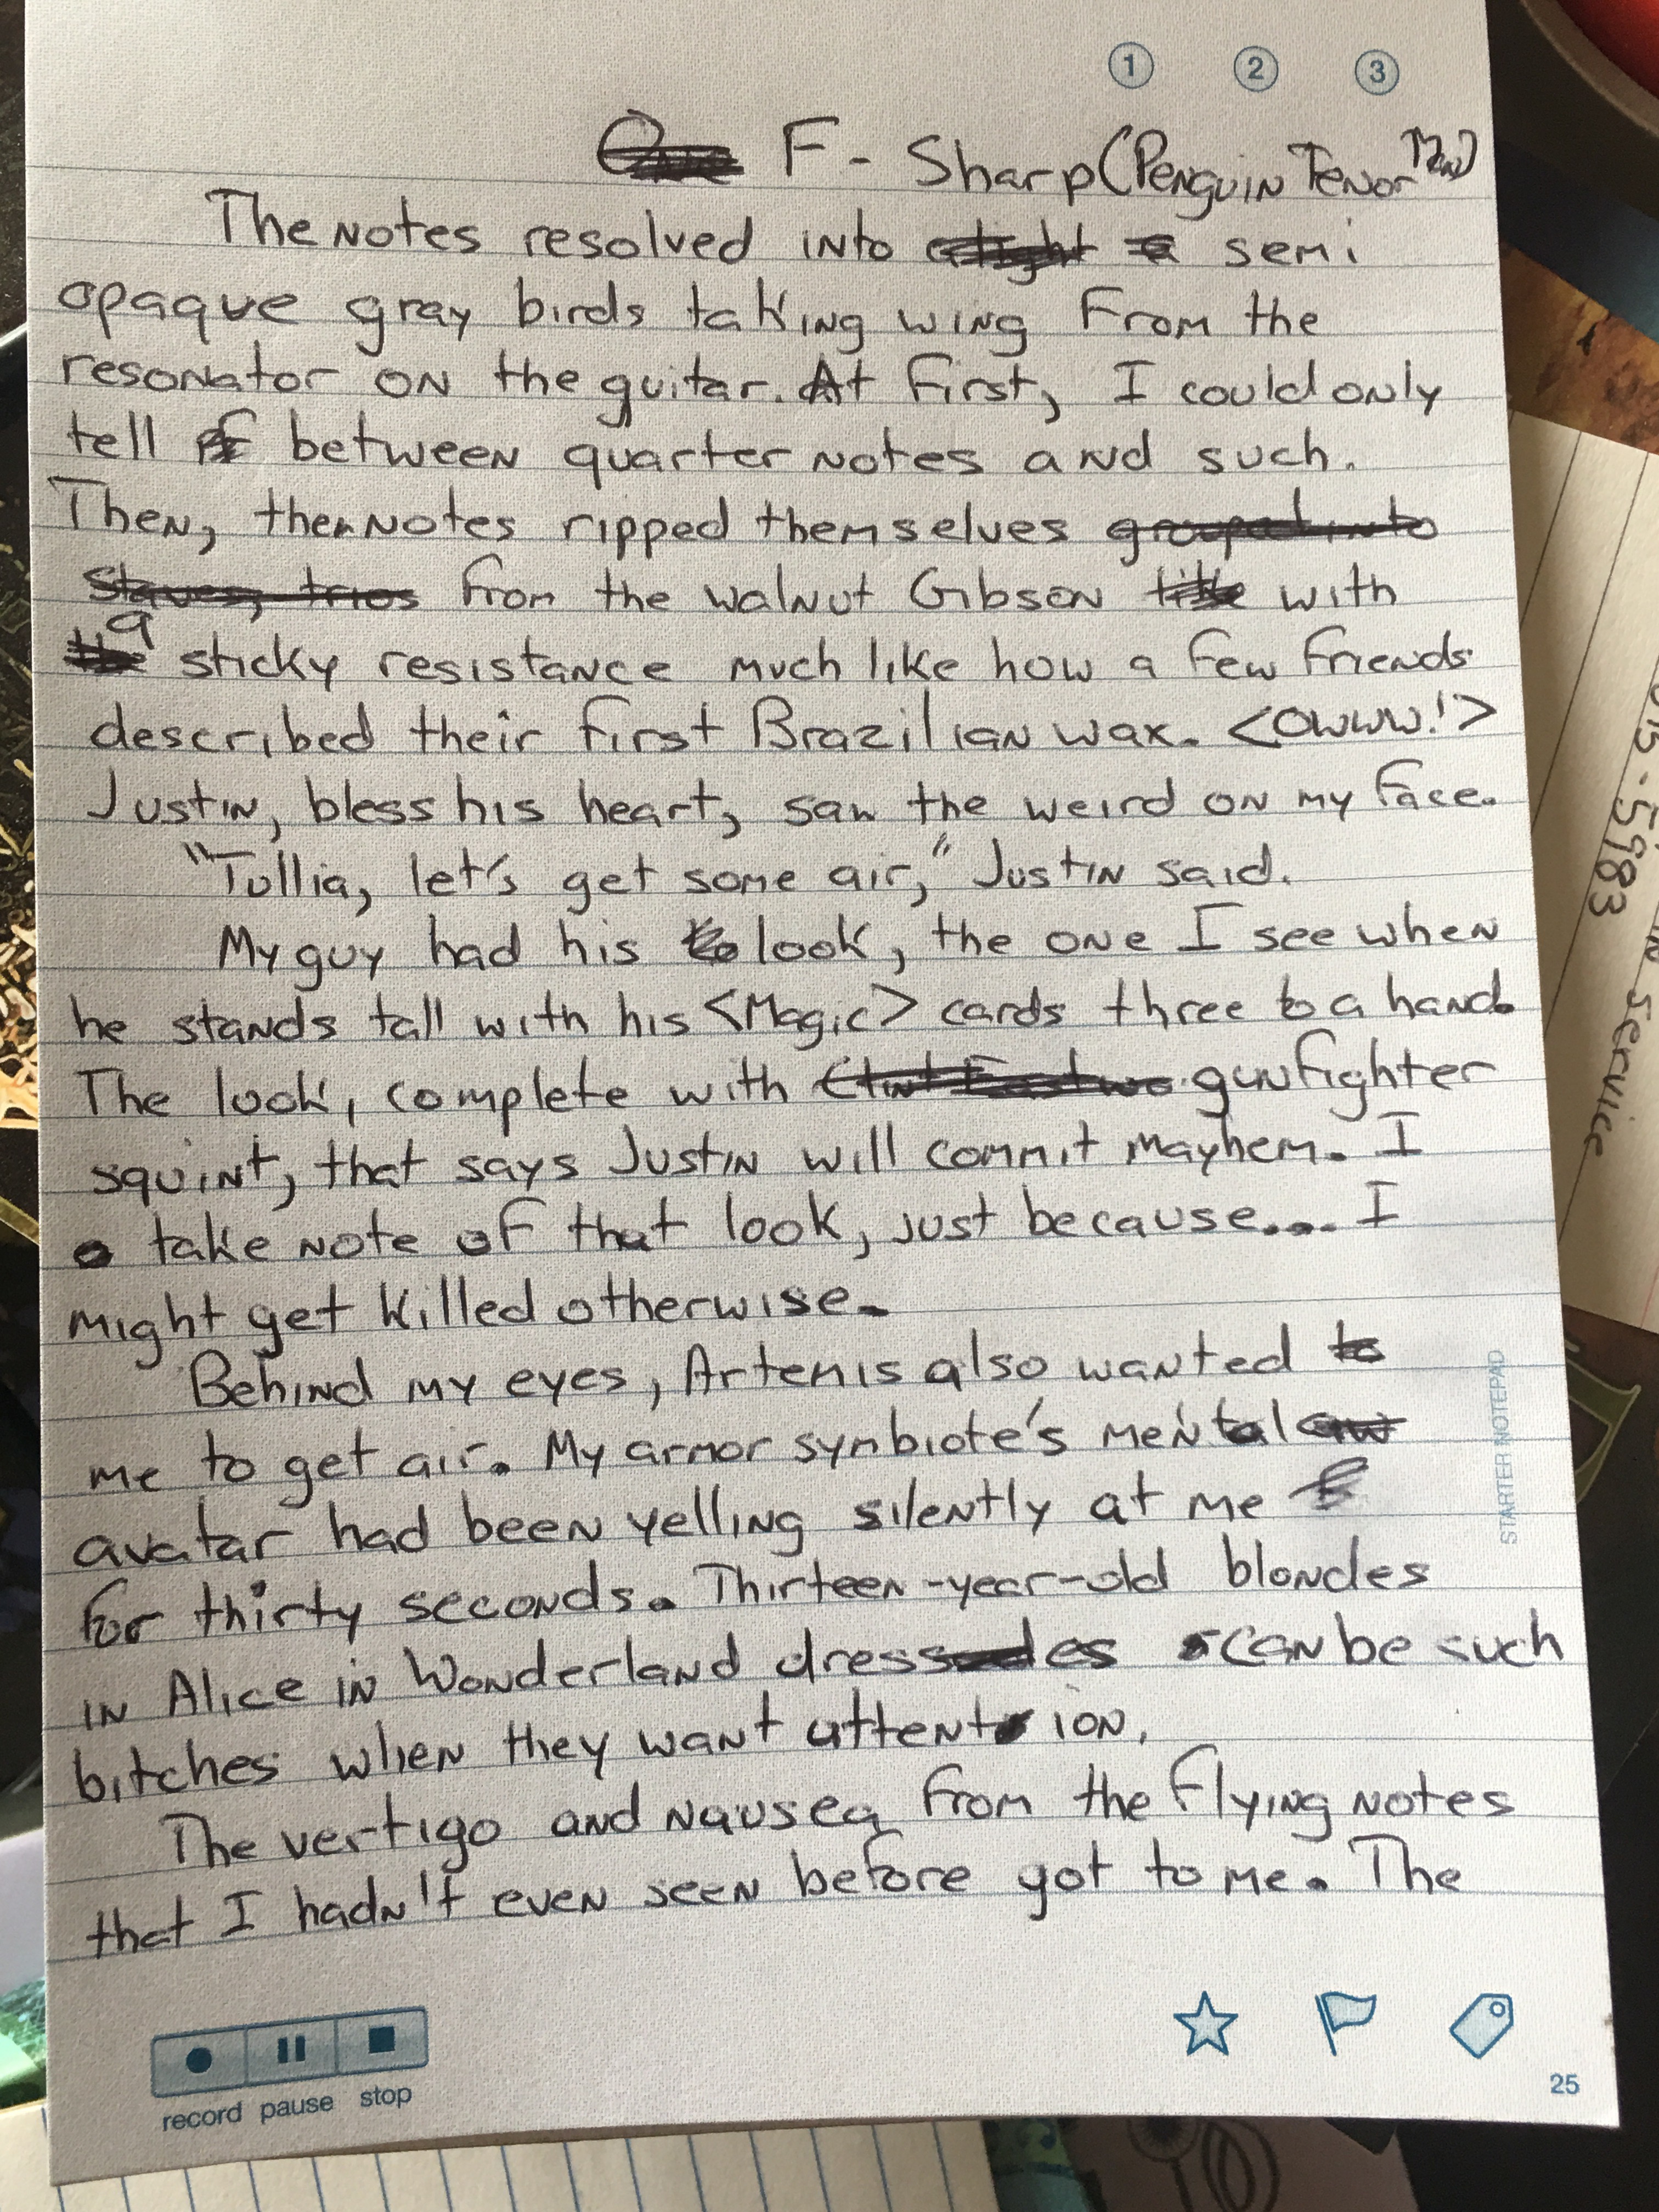 1 2 3
F - Sharp (Penguin Tenor
The notes resolved into semi
opaque gray birds taking wing from the
resonator on the guitar. At first, I could only
tell between quarter notes and such.
Then, the notes ripped themselves grouped into
staves, trios from the walnut Gibson with
a sticky resistance much like how a few friends
described their first Brazilian wax. <Owww!>
Justin, bless his heart, saw the weird on my face.
"Tullia, let's get some air," Justin said.
My guy had his look, the one I see when
he stands tall with his <Magic> cards three to a hand.
The look, complete with gunfighter
squint, that says Justin will commit mayhem. I
take note of that look, just because.... I
might get killed otherwise.
Behind my eyes, Artemis also wanted to
me to get air. My armor symbiote's mental
avatar had been yelling silently at me
for thirty seconds. Thirteen-year-old blondes
in Alice in Wonderland dresses can be such
bitches when they want attention.
The vertigo and nausea from the flying notes
that I hadn't even seen before got to me. The
STARTER NOTEPAD
record pause stop
25
5983
service